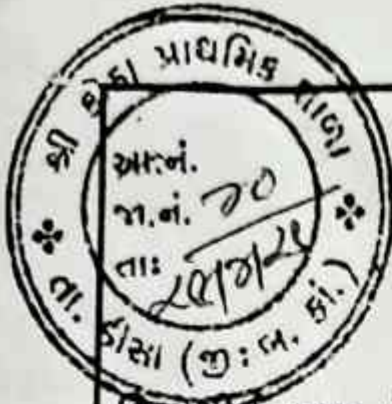 શ્રી પ્રાથમિક શાળા
આ.નં.
જા.નં. ૨૦
તાઃ
તા. ડીસા (જીઃ બ. કાં.)